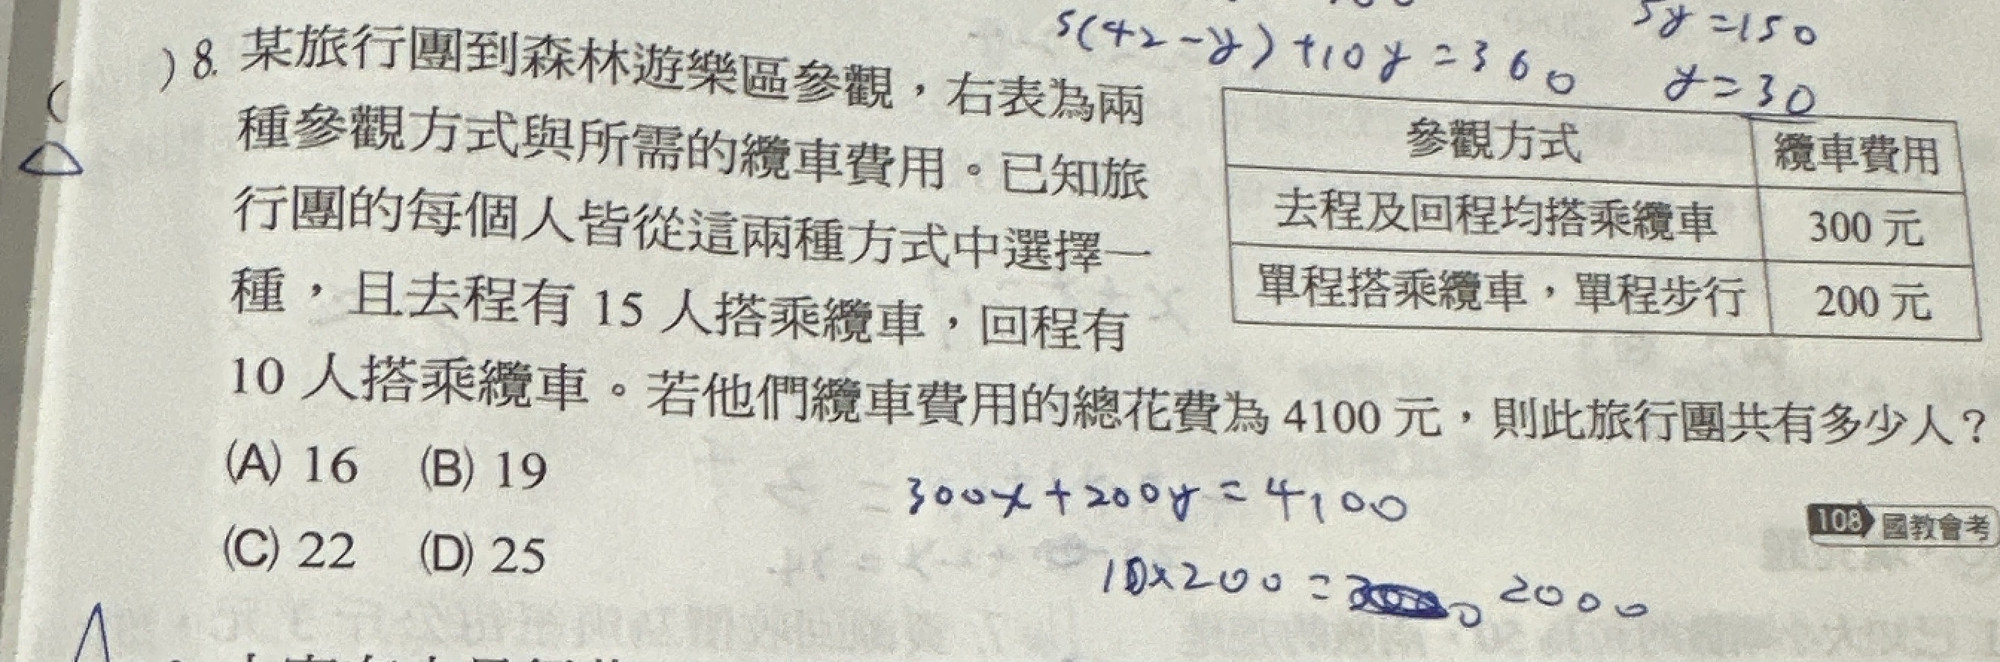 5(42-y)+10y=360
5y=150
y=30
( )8. 某旅行團到森林遊樂區參觀，右表為兩
種參觀方式與所需的纜車費用。已知旅
行團的每個人皆從這兩種方式中選擇一
種，且去程有 15 人搭乘纜車，回程有
10 人搭乘纜車。若他們纜車費用的總花費為 4100 元，則此旅行團共有多少人？
參觀方式 纜車費用
去程及回程均搭乘纜車 300 元
單程搭乘纜車，單程步行 200 元
(A) 16 (B) 19
(C) 22 (D) 25
300x+200y=4100
108 國教會考
10x200= 2000